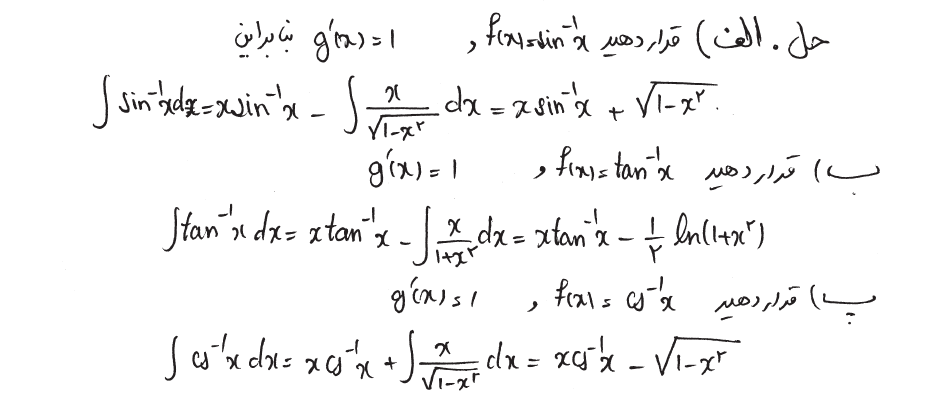 حل. الف) قرار دهید f(x)=sin⁻¹x و g′(x)=1 بنابراین
∫sin⁻¹x dx = x sin⁻¹x − ∫ x/√(1−x²) dx = x sin⁻¹x + √(1−x²).
ب) قرار دهید f(x)=tan⁻¹x و g′(x)=1
∫tan⁻¹x dx = x tan⁻¹x − ∫ x/(1+x²) dx = x tan⁻¹x − 1/۲ ln(1+x²)
پ) قرار دهید f(x)=cos⁻¹x و g′(x)=1
∫cos⁻¹x dx = x cos⁻¹x + ∫ x/√(1−x²) dx = x cos⁻¹x − √(1−x²)